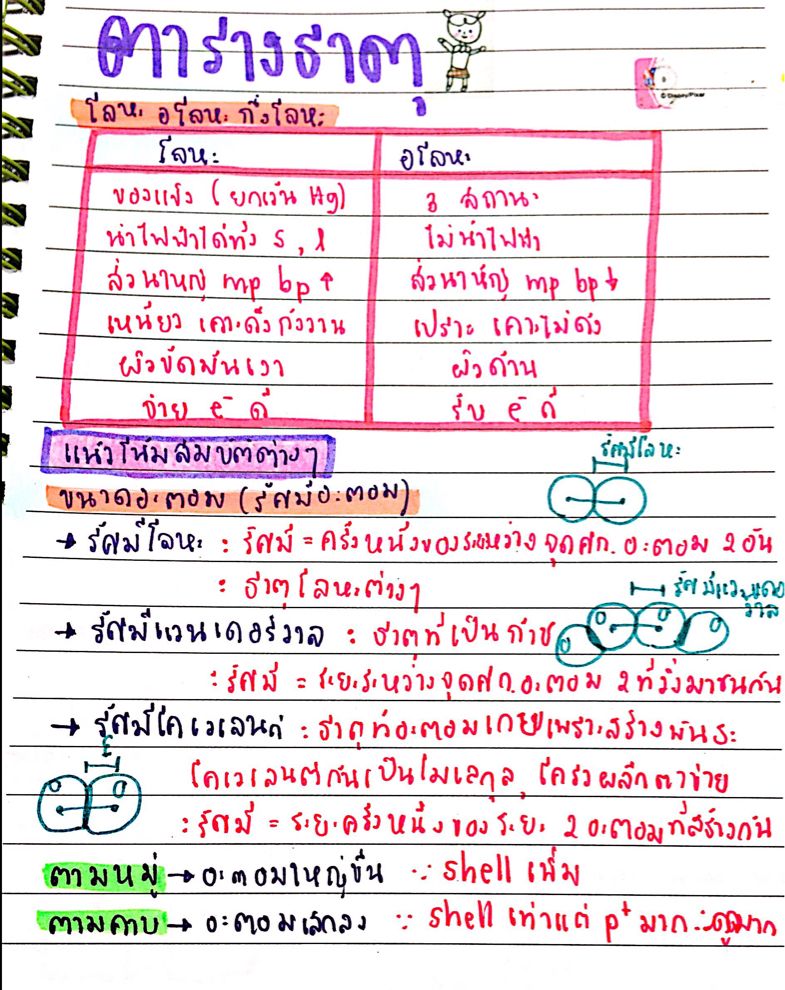 ตารางธาตุ
©Disney/Pixar
โลหะ อโลหะ กึ่งโลหะ
โลหะ อโลหะ
ของแข็ง (ยกเว้น Hg) 3 สถานะ
นำไฟฟ้าได้ทั้ง s, l ไม่นำไฟฟ้า
ส่วนใหญ่ mp bp ↑ ส่วนใหญ่ mp bp ↓
เหนียว เคาะดังกังวาน เปราะ เคาะไม่ดัง
ผิวขัดมันเงา ผิวด้าน
จ่าย e⁻ ดี รับ e⁻ ดี
แนวโน้มสมบัติต่างๆ
รัศมีโลหะ
ขนาดอะตอม (รัศมีอะตอม)
→ รัศมีโลหะ : รัศมี = ครึ่งหนึ่งของระยะหว่าง จุดศก. อะตอม 2 อัน
: ธาตุโลหะต่างๆ
รัศมีแวนเดอร์วาล
→ รัศมีแวนเดอร์วาล : ธาตุที่เป็นก๊าซ
: รัศมี = ระยะระหว่างจุดศก.อะตอม 2 ที่วิ่งมาชนกัน
→ รัศมีโคเวเลนต์ : ธาตุที่อะตอมเกิดเพราะสร้างพันธะ
โคเวเลนต์กันเป็นโมเลกุล, โครงผลึกตาข่าย
: รัศมี = ระยะครึ่งหนึ่งของระยะ 2 อะตอมที่สร้างกัน
ตามหมู่ → อะตอมใหญ่ขึ้น ∵ shell เพิ่ม
ตามคาบ → อะตอมเล็กลง ∵ shell เท่าแต่ p⁺ มาก ∴ดูดมาก